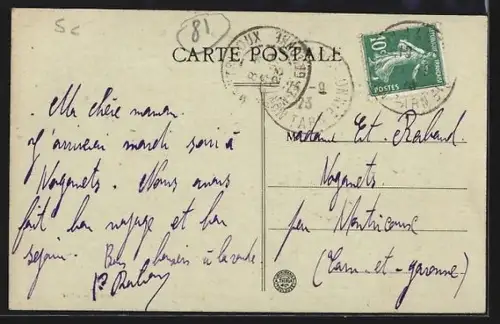 5c
81
CARTE POSTALE
10c
POSTES
Ma chère maman
J'arriverai mardi soir à
Noganets. Nous avons
fait bon voyage et bon
séjour. Bons baisers à la ronde
Madame Et. Rabaud
Noganets
par Montricoux
(Tarn-et-garonne)